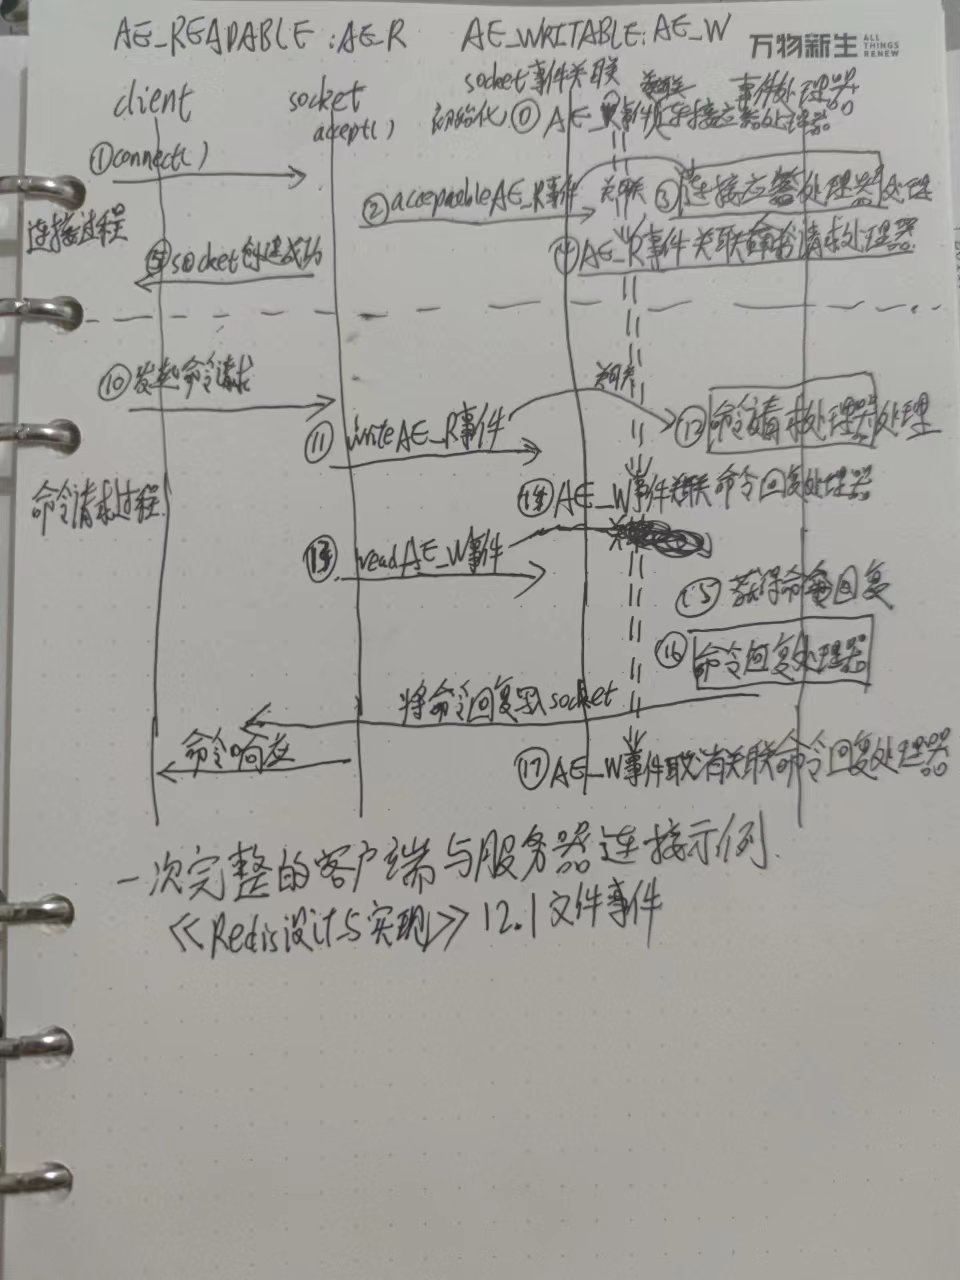 AE_READABLE:AE_R AE_WRITABLE:AE_W
万物新生 ALL THINGS RENEW
client socket accept() socket事件关联 关联 事件处理器
初始化 ⓪ AE_R事件 连接应答处理器
①connect()
②acceptableAE_R事件 关联 ③连接应答处理器处理
连接过程
④AE_R事件关联命令请求处理器
⑤socket创建成功
⑩发起命令请求 关联
⑪writeAE_R事件 ⑫命令请求处理器处理
命令请求过程 ⑭AE_W事件关联命令回复处理器
⑬readAE_W事件 关联
⑮获得命令回复
⑯命令回复处理器
将命令回复写入socket
命令响应 ⑰AE_W事件取消关联命令回复处理器
一次完整的客户端与服务器连接示例.
《Redis设计与实现》12.1文件事件